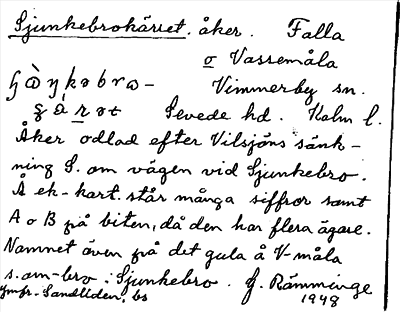 Sjunkebrokärret. åker. Falla
o Vassemåla
Vimmerby sn.
Sevede hd. Kalm l.
Åker odlad efter Vilsjöns sänk-
ning S. om vägen vid Sjunkebro.
Å ek-kart. står många siffror samt
A o B på biten, då den har flera ägare.
Namnet även på det gula å V-måla
s. om-bro. Sjunkebro. J. Rämminge
Jmfr. Sandliden, bs 1948